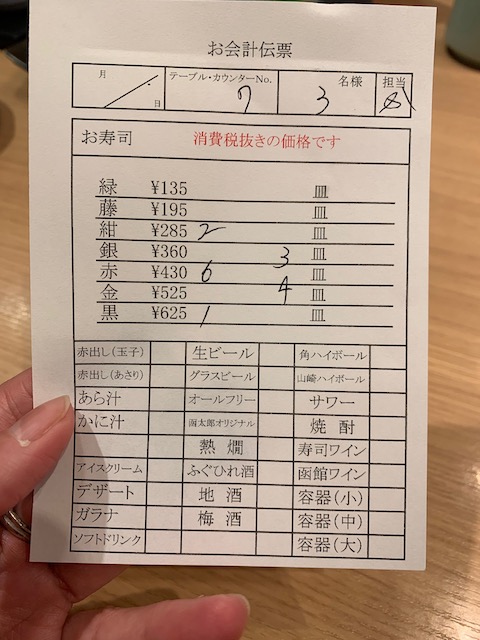 お会計伝票
月 日 テーブル・カウンターNo. 7 3 名様 担当
お寿司 消費税抜きの価格です
緑 ¥135 皿
藤 ¥195 皿
紺 ¥285 2 皿
銀 ¥360 3 皿
赤 ¥430 6 皿
金 ¥525 4 皿
黒 ¥625 1 皿
赤出し(玉子) 生ビール 角ハイボール
赤出し(あさり) グラスビール 山崎ハイボール
あら汁 オールフリー サワー
かに汁 函太郎オリジナル 焼酎
熱燗 寿司ワイン
アイスクリーム ふぐひれ酒 函館ワイン
デザート 地酒 容器(小)
ガラナ 梅酒 容器(中)
ソフトドリンク 容器(大)